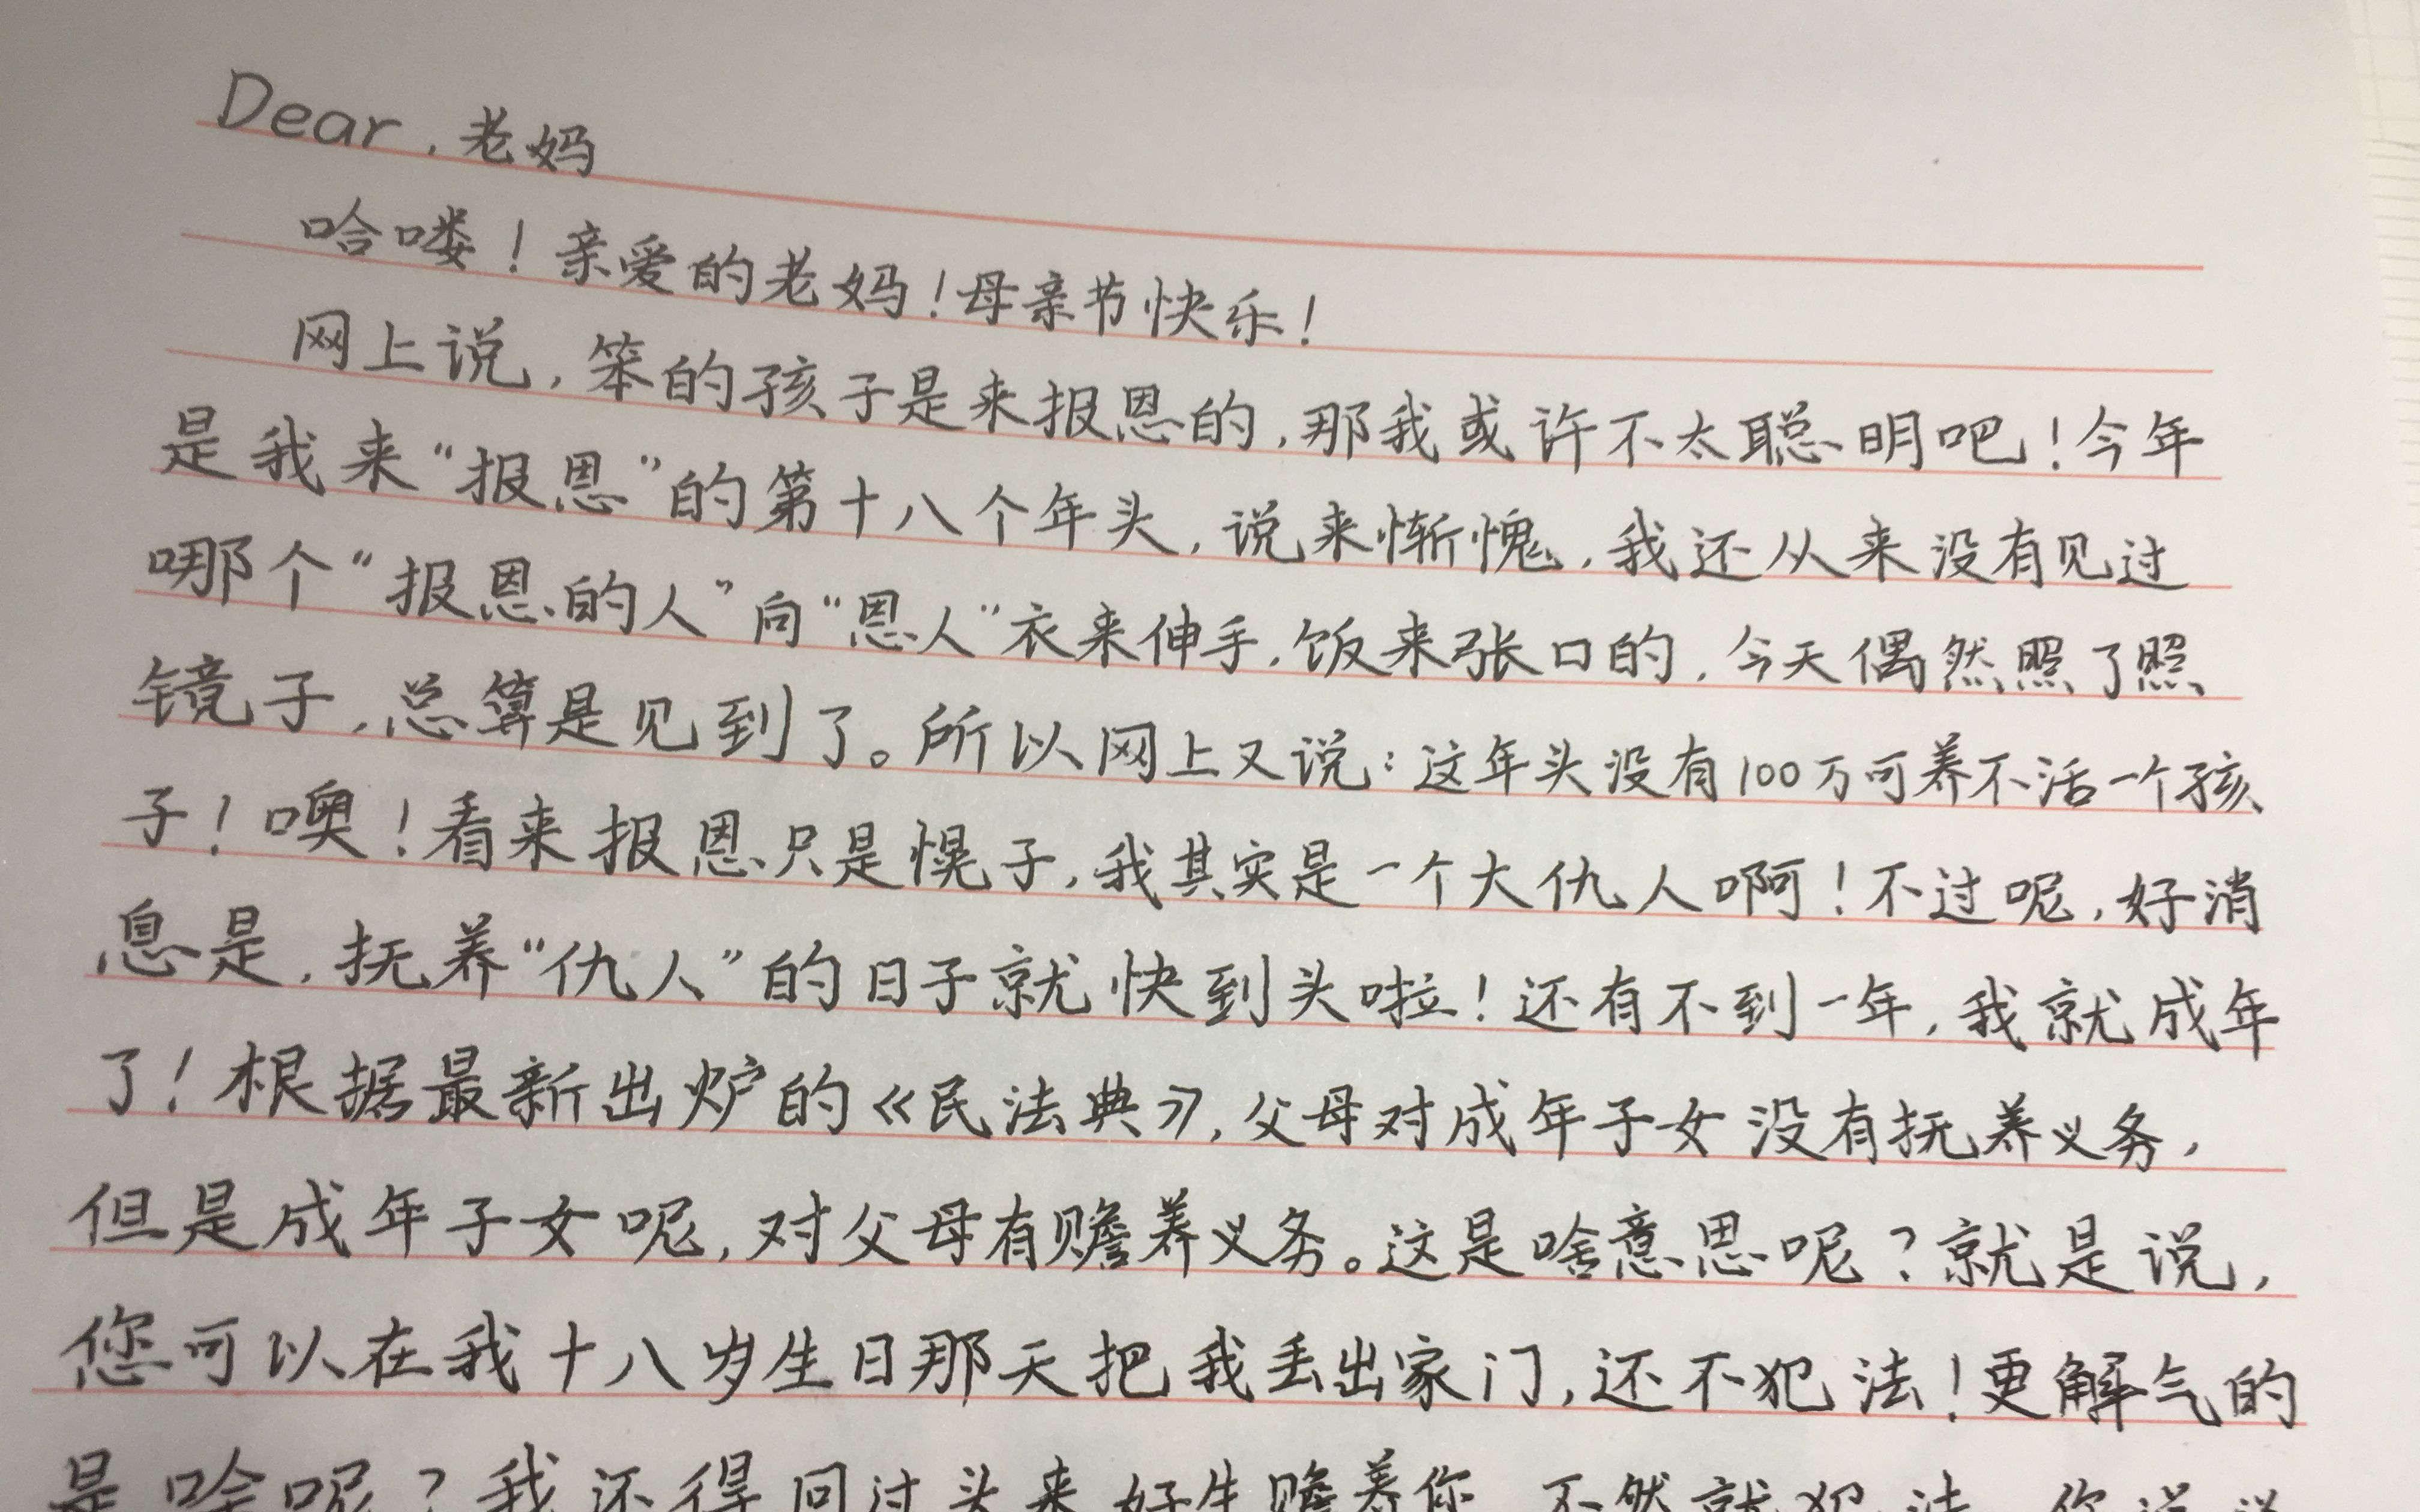 Dear，老妈
哈喽！亲爱的老妈！母亲节快乐！
网上说，笨的孩子是来报恩的，那我或许不太聪明吧！今年
是我来“报恩”的第十八个年头，说来惭愧，我还从来没有见过
哪个“报恩的人”向“恩人”衣来伸手，饭来张口的，今天偶然照了照
镜子，总算是见到了。所以网上又说：这年头没有100万可养不活一个孩
子！噢！看来报恩只是幌子，我其实是一个大仇人啊！不过呢，好消
息是，抚养“仇人”的日子就快到头啦！还有不到一年，我就成年
了！根据最新出炉的《民法典》，父母对成年子女没有抚养义务，
但是成年子女呢，对父母有赡养义务。这是啥意思呢？就是说，
您可以在我十八岁生日那天把我丢出家门，还不犯法！更解气的
是啥呢？我还得回过头来好生赡养你，不然就犯法，你说说